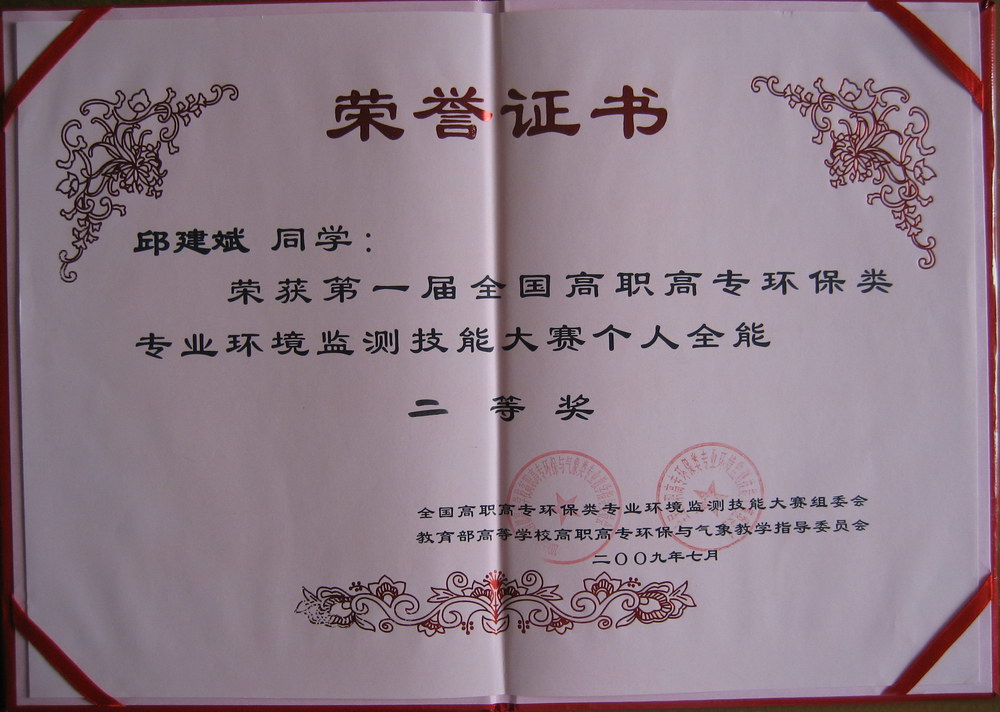 荣誉证书
邱建斌 同学：
荣获第一届全国高职高专环保类
专业环境监测技能大赛个人全能
二等奖
全国高职高专环保类专业环境监测技能大赛组委会
教育部高等学校高职高专环保与气象教学指导委员会
二〇〇九年七月